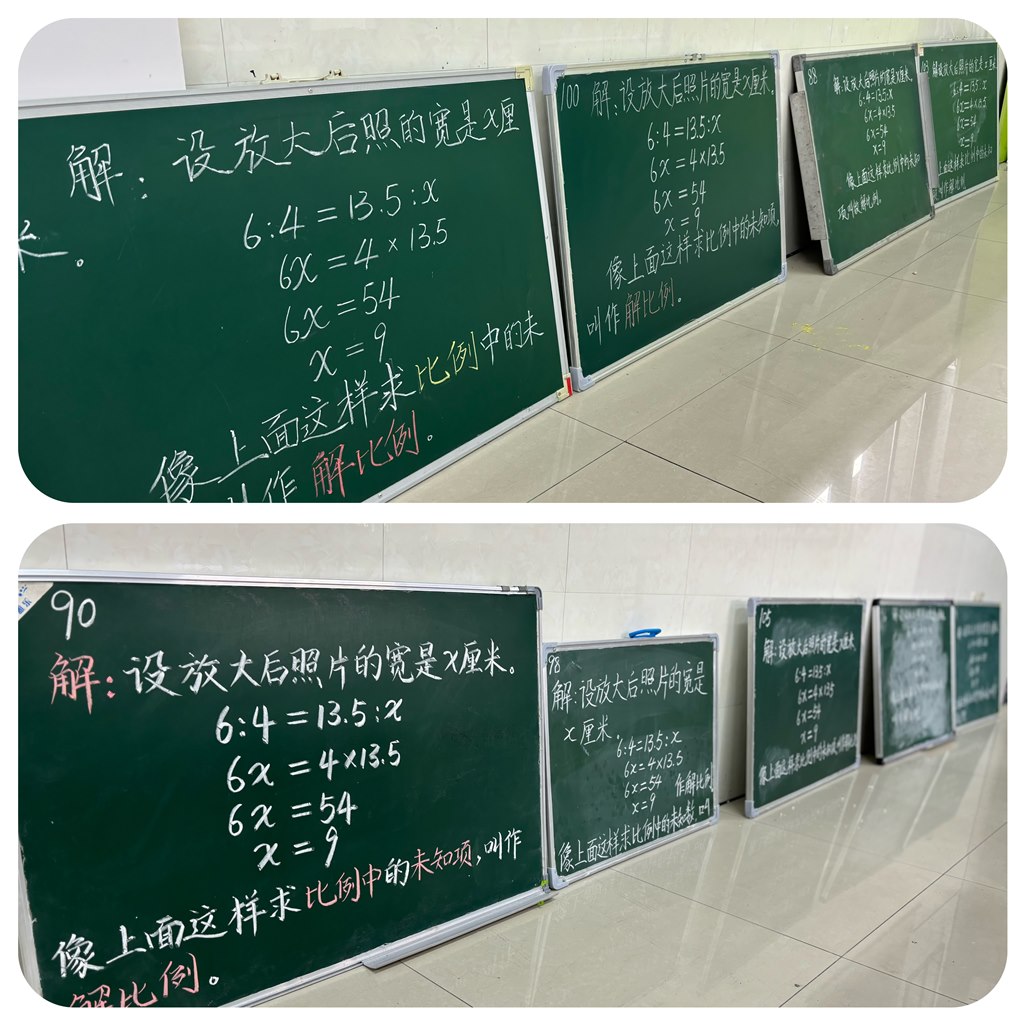 解：设放大后照的宽是x厘
米。
6:4=13.5:x
6x=4×13.5
6x=54
x=9
像上面这样求比例中的未
叫作解比例。
100
解:设放大后照片的宽是x厘米。
6:4=13.5:x
6x=4×13.5
6x=54
x=9
像上面这样求比例中的未知项,
叫作解比例。
88
解:设放大后照片的宽是x厘米。
6:4=13.5:x
6x=4×13.5
6x=54
x=9
像上面这样求比例中的未知
项叫做解比例。
解设放大后照片的宽是x厘米
6:4=13.5:x
6x=4×13.5
6x=54
x=9
90
解:设放大后照片的宽是x厘米。
6:4=13.5:x
6x=4×13.5
6x=54
x=9
像上面这样求比例中的未知项,叫作
解比例。
98
解:设放大后照片的宽是
x厘米。
6:4=13.5:x
6x=4×13.5
6x=54
x=9
作解比例
像上面这样求比例中的未知数,叫
105
解:设放大后照片的宽是x厘米
6:4=13.5:x
6x=4×13.5
6x=54
x=9
像上面这样求比例中的未知